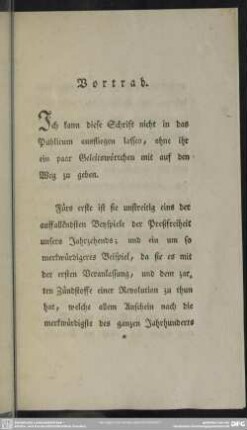 Vortrab.
Ich kann diese Schrift nicht in das
Publicum ausfliegen lassen, ohne ihr
ein paar Geleitswörtchen mit auf den
Weg zu geben.
Fürs erste ist sie unstreitig eins der
auffallendsten Beyspiele der Preßfreiheit
unsers Jahrzehends; und ein um so
merkwürdigeres Beispiel, da sie es mit
der ersten Veranlassung, und dem zar,
ten Zündstoffe einer Revolution zu thun
hat, welche allem Anschein nach die
merkwürdigste des ganzen Jahrhunderts
*